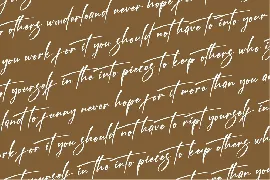 never hope for
others wonderland never hope for
you work for it you should not have to into your
yourself in the into pieces to keep others who s
land to funny never hope for it more than you a
rk for it you should not have to ript yourself in
yourself in the into pieces to keep others wh
never hope for it more than